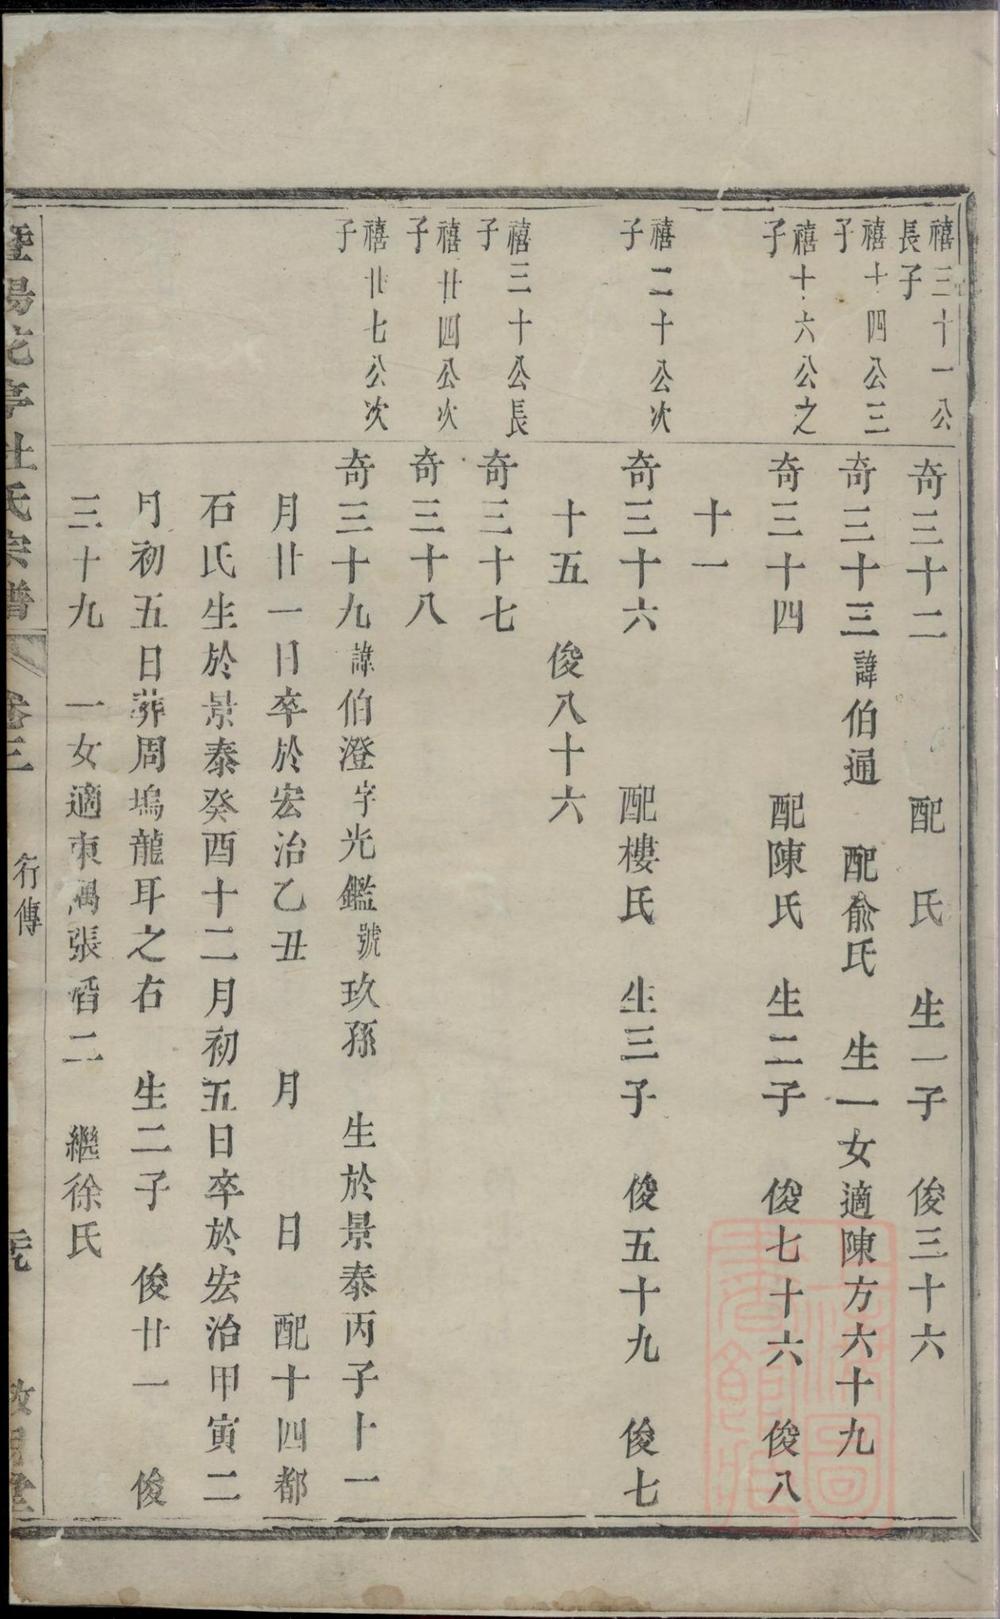 禧三十一公
長子
奇三十二　配　氏　生一子　俊三十六
禧十四公三
子
奇三十三諱伯通　配俞氏　生一女適陳方六十九
禧十六公之
子
奇三十四　配陳氏　生二子　俊七十六　俊八
十一
禧二十公次
子
奇三十六　配樓氏　生三子　俊五十九　俊七
十五　俊八十六
禧三十公長
子
奇三十七
禧廿四公次
子
奇三十八
禧廿七公次
子
奇三十九諱伯澄字光鑑號玖孫　生於景泰丙子十一
月廿一日卒於宏治乙丑　月　日　配十四都
石氏生於景泰癸酉十二月初五日卒於宏治甲寅二
月初五日葬周塢龍耳之右　生二子　俊廿一　俊
三十九　一女適東禹張酉二　繼徐氏
暨陽花亭杜氏宗譜　卷三　行傳